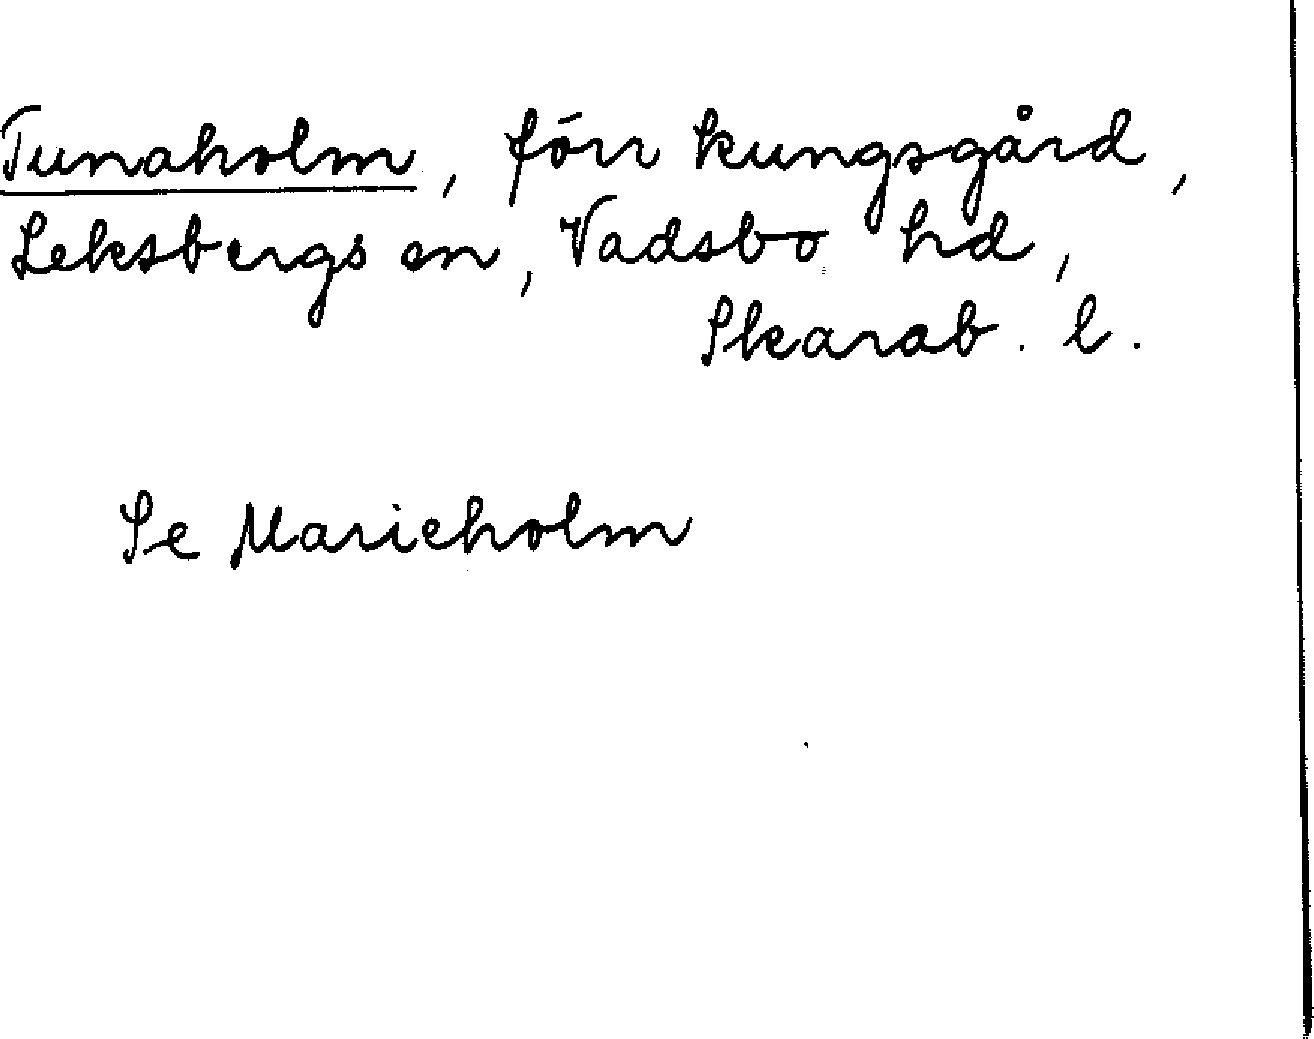 Tunaholm, förr kungsgård,
Leksbergs sn, Vadsbo hd,
Skarab. l.
Se Marieholm